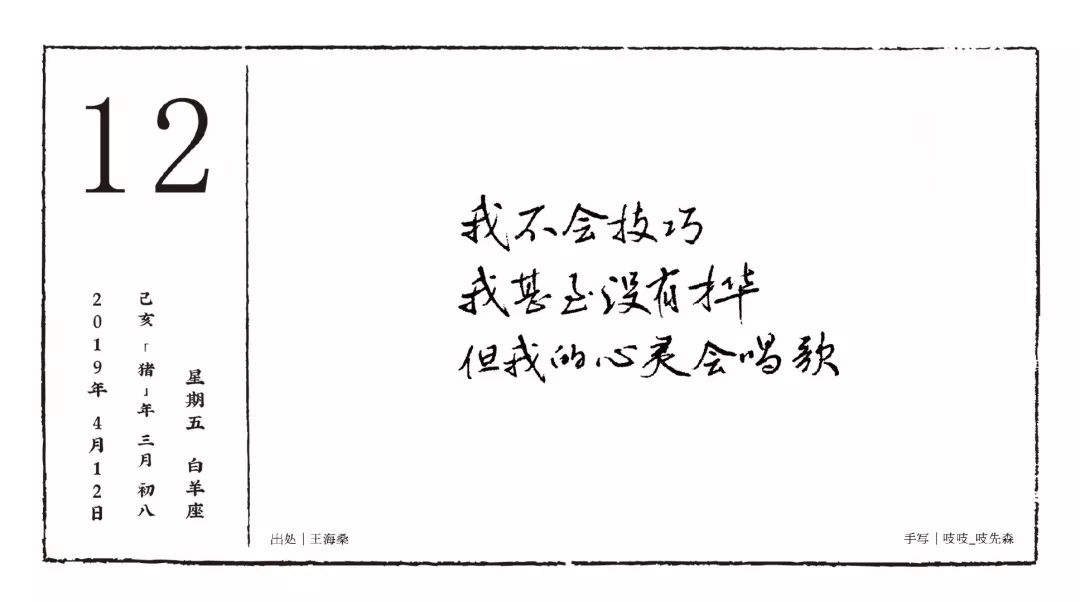 12
2019年 4月12日
己亥「猪」年 三月 初八
星期五 白羊座
我不会技巧
我甚至没有才华
但我的心灵会唱歌
出处｜王海桑
手写｜吱吱_吱先森